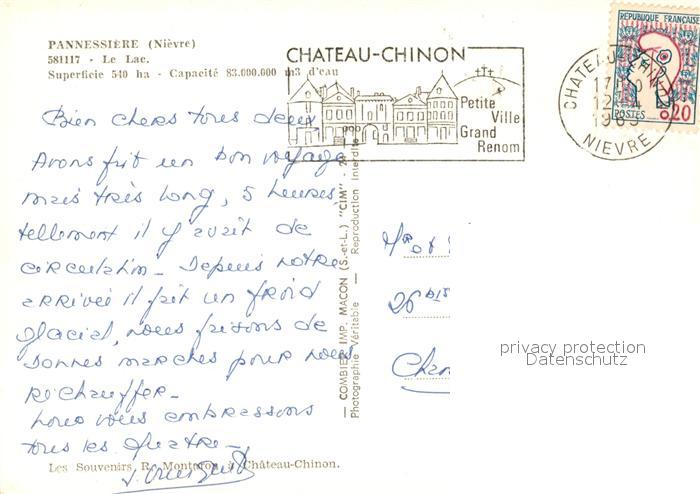 PANNESSIÈRE (Nièvre)
581117 - Le Lac.
Superficie 540 ha - Capacité 83.000.000 m3 d'eau
CHATEAU-CHINON
Petite
Ville
Grand
Renom
CHATEAU-CHINON
17H
12-4
1963
NIEVRE
REPUBLIQUE FRANÇAISE
POSTES 0,20
Bien chers tous deux,
Avons fait un bon voyage
mais très long, 5 heures
tellement il y avait de
circulation - Depuis notre
arrivée il fait un froid
glacial, nous faisons de
bonnes marches pour nous
réchauffer -
nous vous embrassons
tous les quatre -
— COMBIER IMP. MACON (S.-et-L.) "CIM" —
Photographie Véritable — Reproduction Interdite
Mr et
26 bis
privacy protection
Datenschutz
Les Souvenirs R. Monteron, à Château-Chinon.